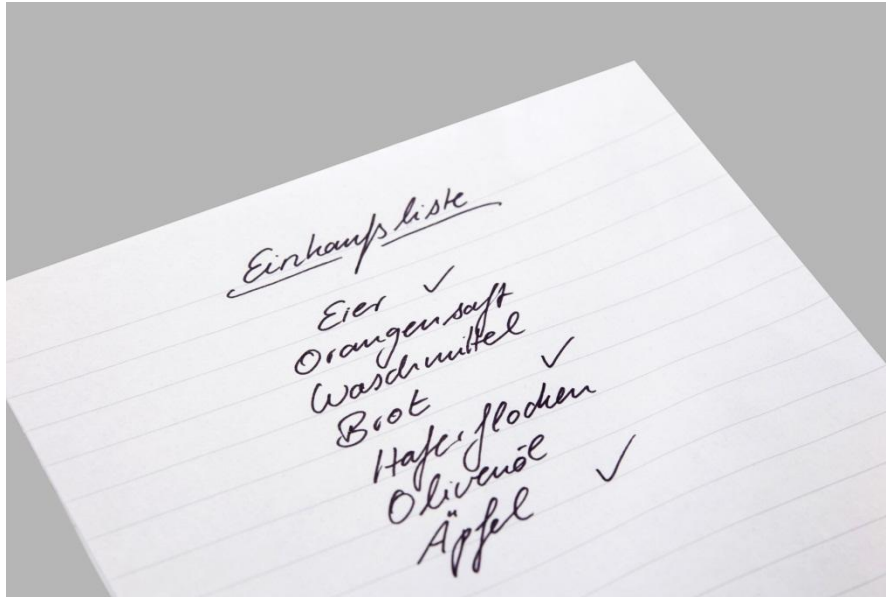 Einkaufsliste
Eier ✓
Orangensaft
Waschmittel
Brot ✓
Haferflocken
Olivenöl
Äpfel ✓